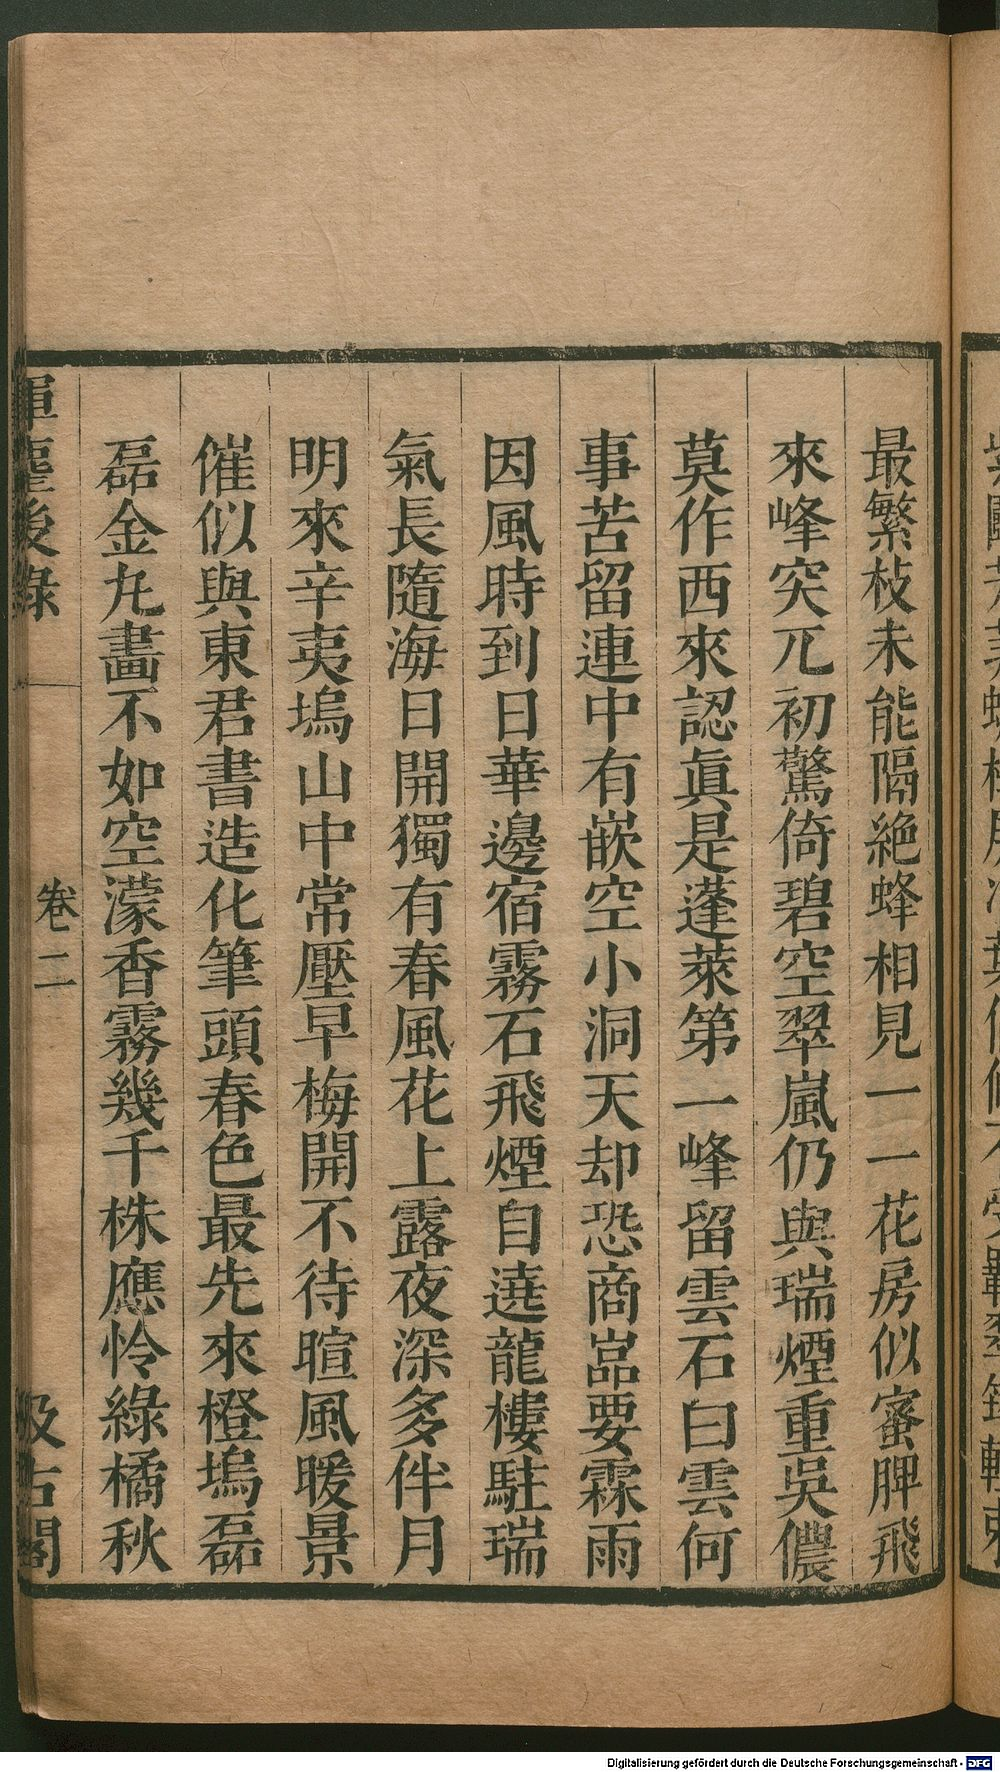 最繁枝未能隔絶蜂相見一一花房似蜜脾飛
來峰突兀初驚倚碧空翠嵐仍與瑞煙重吳儂
莫作西來認眞是蓬萊第一峰留雲石曰雲何
事苦留連中有嵌空小洞天却恐商嵓要霖雨
因風時到日華邊宿霧石飛煙自遶龍樓駐瑞
氣長隨海日開獨有春風花上露夜深多伴月
明來辛夷塢山中常壓早梅開不待暄風暖景
催似與東君書造化筆頭春色最先來橙塢磊
磊金丸畫不如空濛香霧幾千株應怜綠橘秋
後錄
卷二
Digitalisierung gefördert durch die Deutsche Forschungsgemeinschaft - DFG